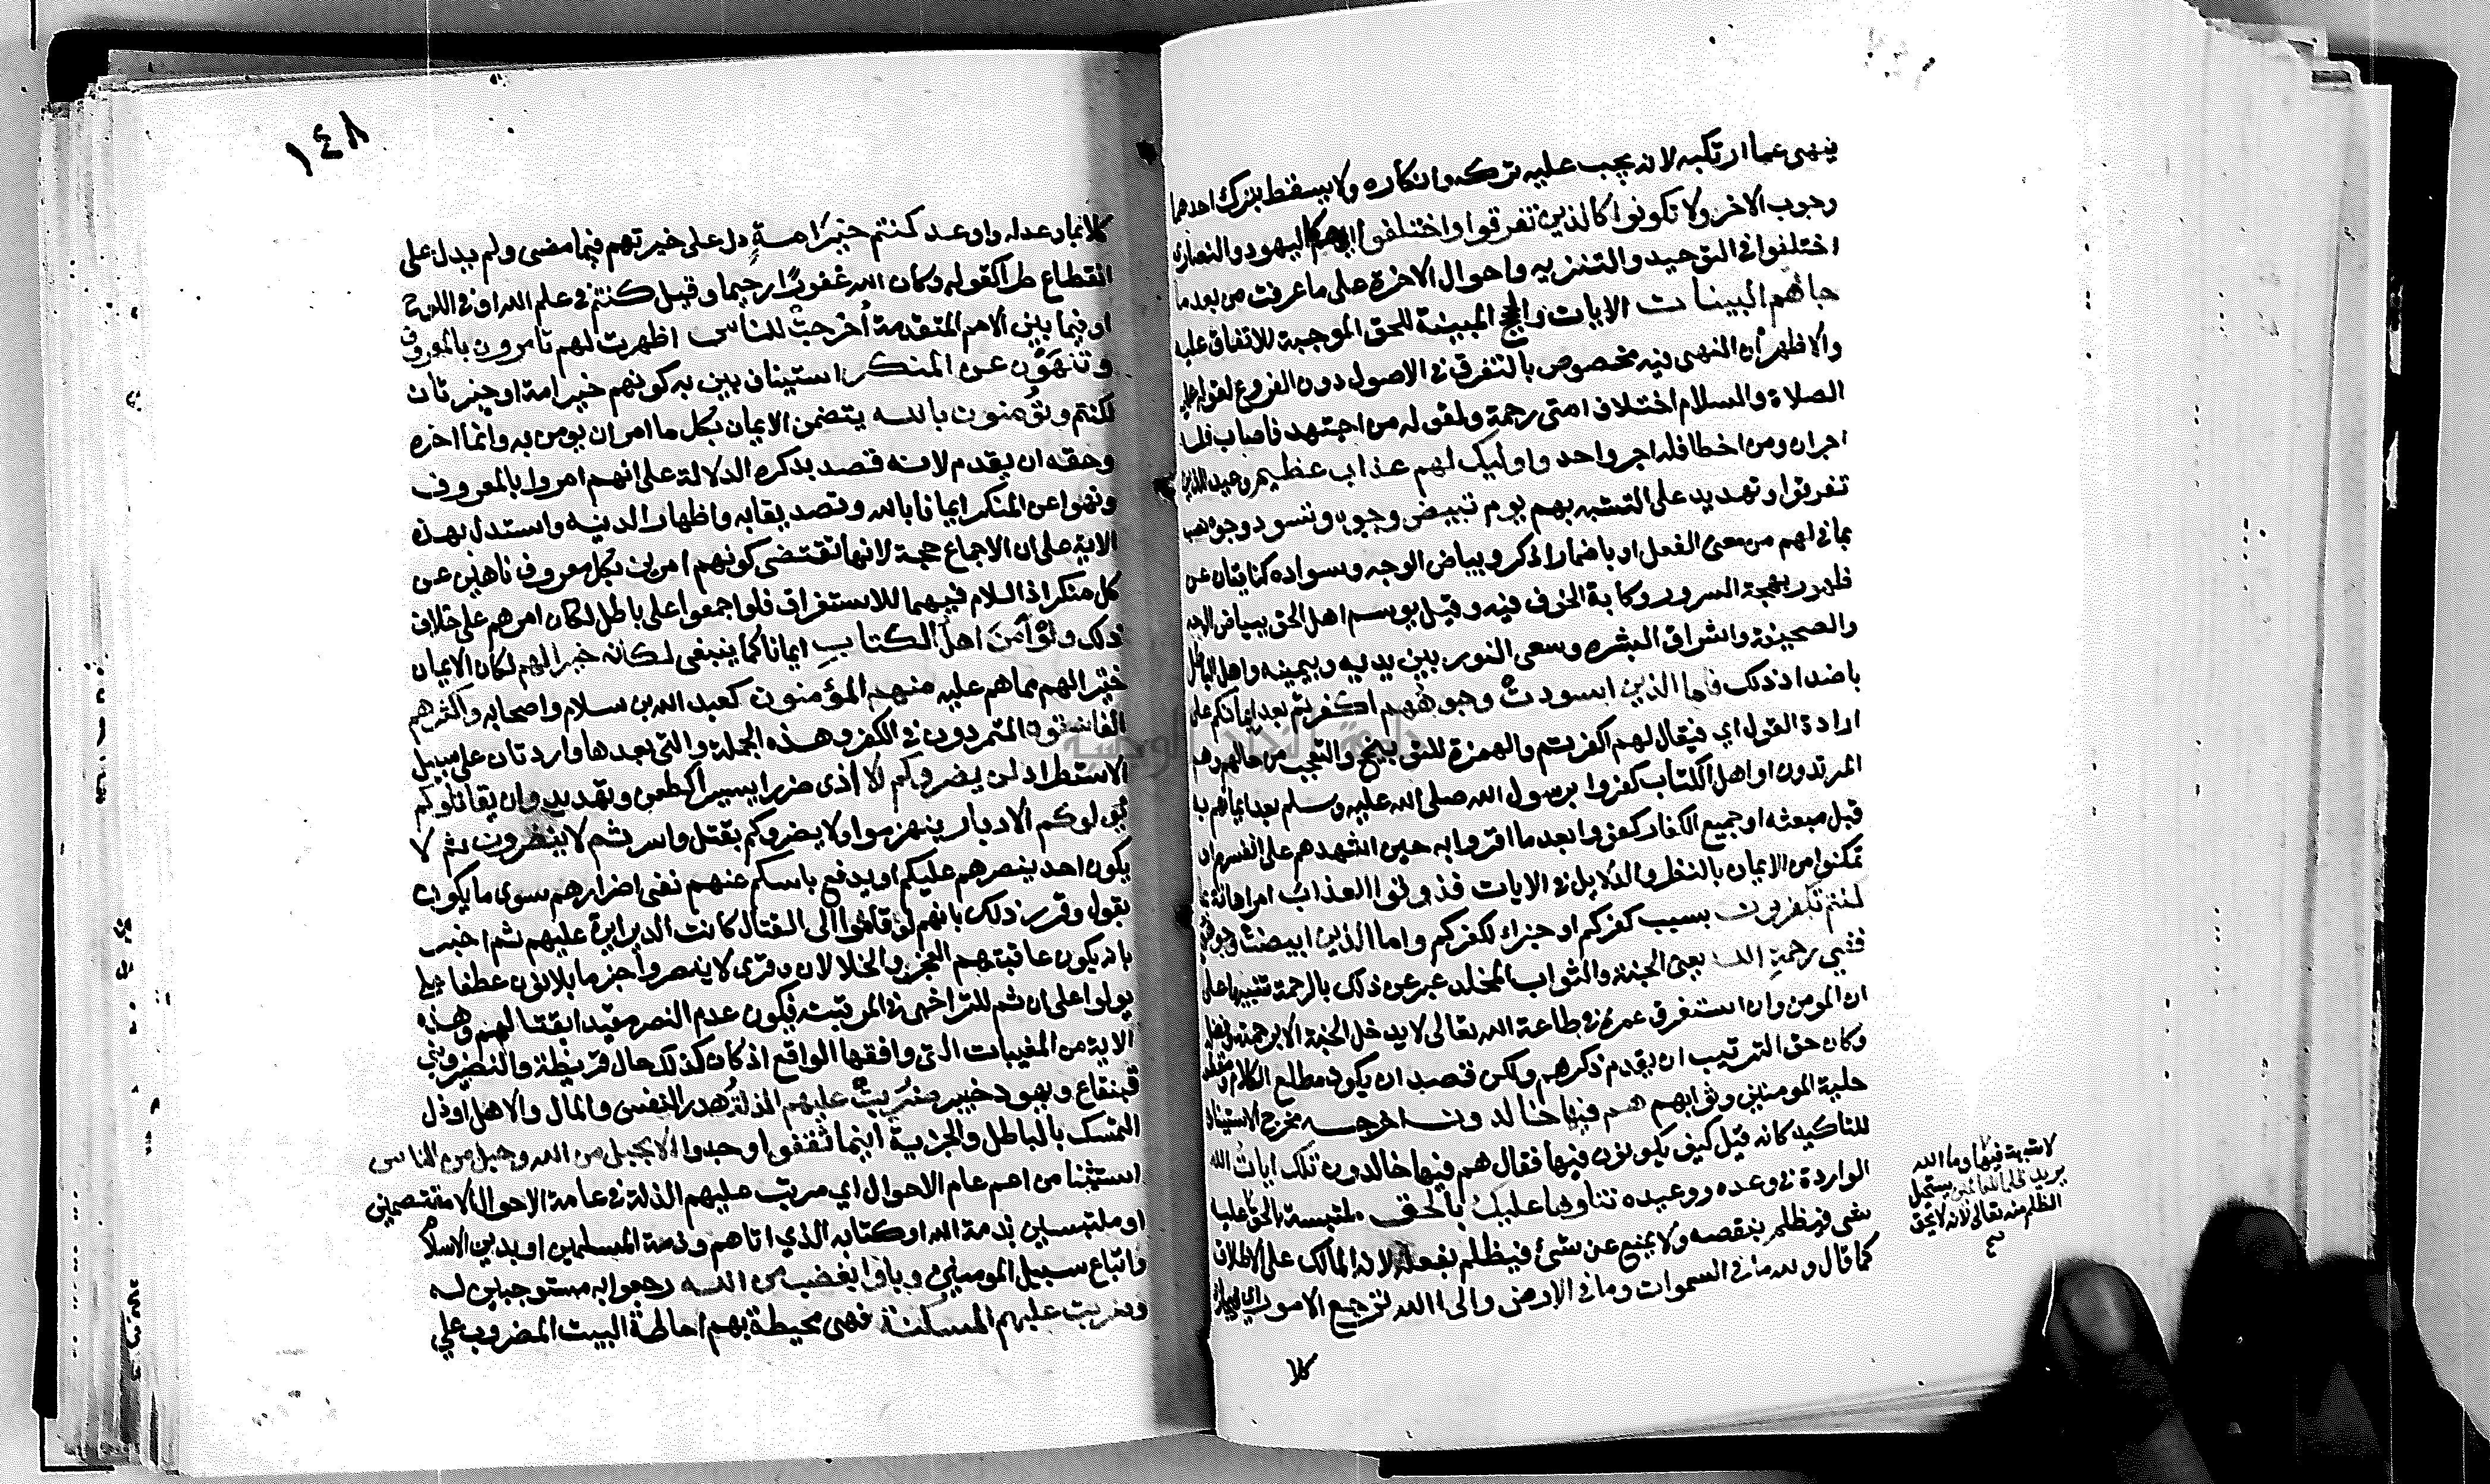 ينهى عما ارتكبه لانه يجب عليه تركه وانكاره ولا يسقط بترك احدهما
وجوب الاخر ولا تكونوا كالذين تفرقوا واختلفوا كاليهود والنصارى
اختلفوا في التوحيد والتنزيه واحوال الاخرة على ما عرفت من بعد ما
جاهم البينات الايات والحجج المبينة للحق الموجبة للاتفاق عليه
والاظهر أن النهى فيه مخصوص بالتفرق في الاصول دون الفروع لقوله عليه
الصلاة والسلام اختلاف امتى رحمة ولقوله من اجتهد فاصاب فله
اجران ومن اخطا فله اجر واحد واوليك لهم عذاب عظيم وعيد للذين
تفرقوا وتهديد على التشبه بهم يوم تبيض وجوه وتسود وجوه نصب
بما في لهم من معنى الفعل او باضمار اذكر وبياض الوجه وسواده كنايتان عن
ظهور بهجة السرور وكابة الخوف فيه وقيل يوسم اهل الحق ببياض الوجه
والصحيفة واشراق البشره وسعى النور بين يديه وبيمينه واهل الباطل
باضداد ذلك فاما الذين اسودتْ وجوههم اكفرتم بعد ايمانكم على
ارادة القول اي فيقال لهم اكفرتم والهمزة للتوبيخ والتعجب من حالهم وهم
المرتدون او اهل الكتاب كفروا برسول الله صلى الله عليه وسلم بعد ايمانهم به
قبل مبعثه او جميع الكفار كفروا بعد ما اقروا به حين اشهدهم على انفسهم او
تمكنوا من الايمان بالنظر والدلايل في الايات فذوقوا العذاب امر اهانة بما
كنتم تكفرون بسبب كفركم او جزاء لكفركم واما الذين ابيضت وجوههم
ففي رحمةِ الله يعنى الجنة والثواب المخلد عبر عن ذلك بالرحمة تنبيها على
ان المومن وان استغرق عمره في طاعة الله تعالى لا يدخل الجنة الا برحمته وفضله
وكان حق الترتيب ان يقدم ذكرهم ولكن قصد ان يكون مطلع الكلام ومقطعه
حلية المومنين وثوابهم هم فيها خالدون اخرجه مخرج الاستيناف
للتاكيد كانه قيل كيف يكونون فيها فقال هم فيها خالدون تلك اياتُ الله
الواردة في وعده ووعيده نتلوها عليك بالحق ملتبسة بالحق
لا شبهة فيها وما الله
يريد ظلما للعالمين يستحيل
الظلم منه تعالى لانه لا يحق
عليه شى فيظلم بنقصه ولا يمنع عن شئ فيظلم بفعله لانه المالك على الاطلاق
كما قال ولله ما في السموات وما في الارض والى الله ترجع الامور
كلا
١٤٨
كلا بما وعد له واوعد كنتم خيرَ امةٍ دل على خيرتهم فيما مضى ولم يدل على
انقطاع طرا كقوله وكان الله غفورًا رحيما وقيل كنتم في علم الله او في اللوح
او فيما بين الامم المتقدمة أخرجتْ للناس اظهرت لهم تأمرون بالمعروف
وتنهَوْن عن المنكر استيناف بين به كونهم خير امة او خبر ثان
لكنتم وتؤمنون بالله يتضمن الايمان بكل ما امر ان يومن به وانما اخره
وحقه ان يقدم لانه قصد بذكره الدلالة على انهم امروا بالمعروف
ونهوا عن المنكر ايمانا بالله وتصديقا به واظهارا لدينه واستدل بهذه
الاية على ان الاجماع حجة لانها تقتضى كونهم امرين بكل معروف ناهين عن
كل منكر اذ اللام فيهما للاستغراق فلو اجمعوا على باطل لكان امرهم على خلاف
ذلك ولوْ آمنَ اهلُ الكتابِ ايمانا كما ينبغى لكان خيرا لهم لكان الايمان
خيرًا لهم مما هم عليه منهم المؤمنون كعبد الله بن سلام واصحابه واكثرهم
الفاسقون المتمردون في الكفر وهذه الجملة والتى بعدها واردتان على سبيل
الاستطراد لن يضروكم الا أذى ضررا يسيرا كطعن وتهديد وان يقاتلوكم
يولوكم الأدبار ينهزموا ولا يضروكم بقتل واسر ثم لا ينصرون ثم لا
يكون احد ينصرهم عليكم او يدفع باسكم عنهم نفى اضرارهم سوى ما يكون
بقول وقرر ذلك بانهم لو قاموا الى القتال كانت الدبرة عليهم ثم اخبر
بانه يكون عاقبتهم العجز والخذلان وقرى لا ينصروا عطفا على
يولوا على ان ثم للتراخى في المرتبة فيكون عدم النصر مقيدا بقتالهم وهذه
الاية من المغيبات التى وافقها الواقع اذ كان كذلك حال قريظة والنضير وبنى
قينقاع ويهود خيبر ضُربتْ عليهم الذلةُ هدر النفس والمال والاهل او ذل
التمسك بالباطل والجزية اينما ثُقفوا وجدوا الا بحبل من الله وحبل من الناس
استثنا من اعم عام الاحوال اي ضربت عليهم الذلة في عامة الاحوال الا معتصمين
او ملتبسين بذمة الله او كتابه الذي اتاهم وذمة المسلمين او بدين الاسلام
واتباع سبيل المومنين وباوا بغضب من الله رجعوا به مستوجبين له
وضربت عليهم المسكنة فهى محيطة بهم احاطة البيت المضروب على